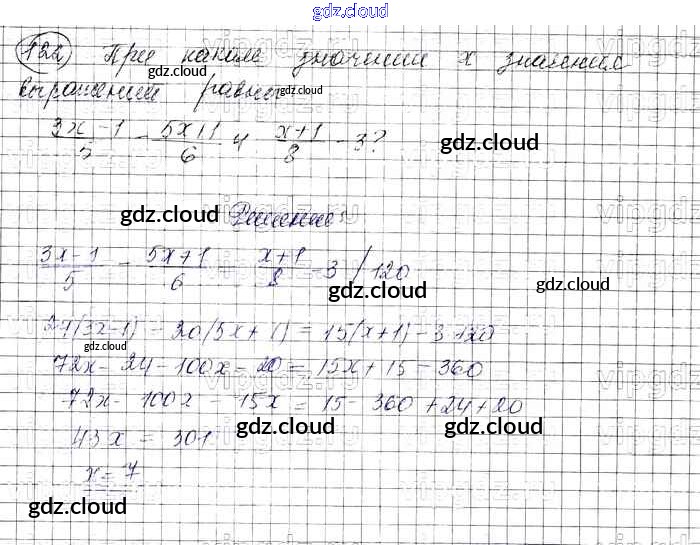 gdz.cloud
122) При каком значении x значения
gdz.cloud
выражений равны gdz.cloud
3x-1/5 - 5x+1/6 и x+1/8 - 3?
gdz.cloud
gdz.cloud Решение:
3x-1/5 - 5x+1/6 = x+1/8 - 3 /120
gdz.cloud gdz.cloud
24(3x-1) - 20(5x+1) = 15(x+1) - 3·120
gdz.cloud
72x - 24 - 100x - 20 = 15x + 15 - 360
gdz.cloud
72x - 100x - 15x = 15 - 360 + 24 + 20
43x = 301 gdz.cloud gdz.cloud
x = 7
gdz.cloud gdz.cloud